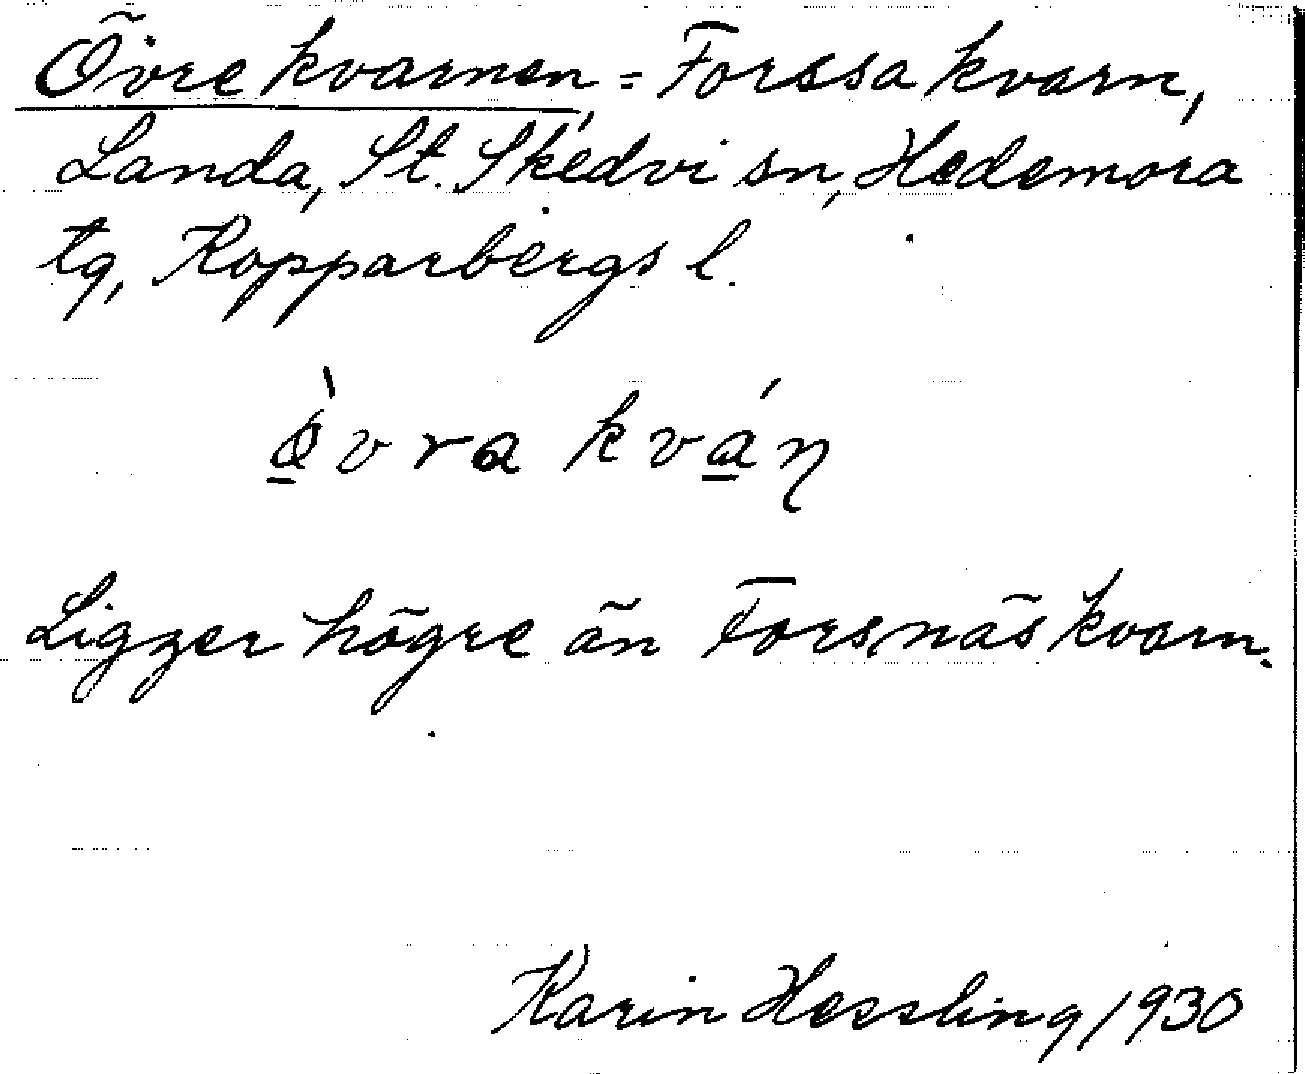 Övre kvarnen, = Forssa kvarn,
Landa, St. Skedvi sn, Hedemora
tg, Kopparbergs l.
ø̀vra kváṇ
Ligger högre än Forsnäs kvarn.
Karin Hessling 1930